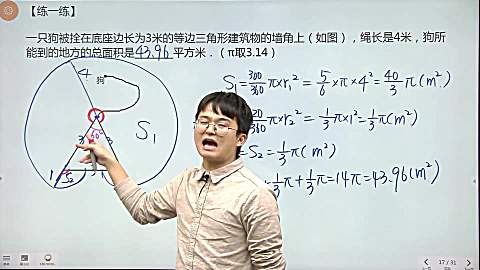 【练一练】
一只狗被拴在底座边长为3米的等边三角形建筑物的墙角上（如图），绳长是4米，狗所
能到的地方的总面积是43.96平方米．（π取3.14）
4
狗
S₁
60°
3
3
1
S₂
3
1
S₁=300/360πxr₁²=5/6×π×4²=40/3π(m²)
20/360πxr₂²=1/3πx1²=1/3π(m²)
=S₂=1/3π(m²)
1/3π+1/3π=14π=43.96(m²)
17 / 31